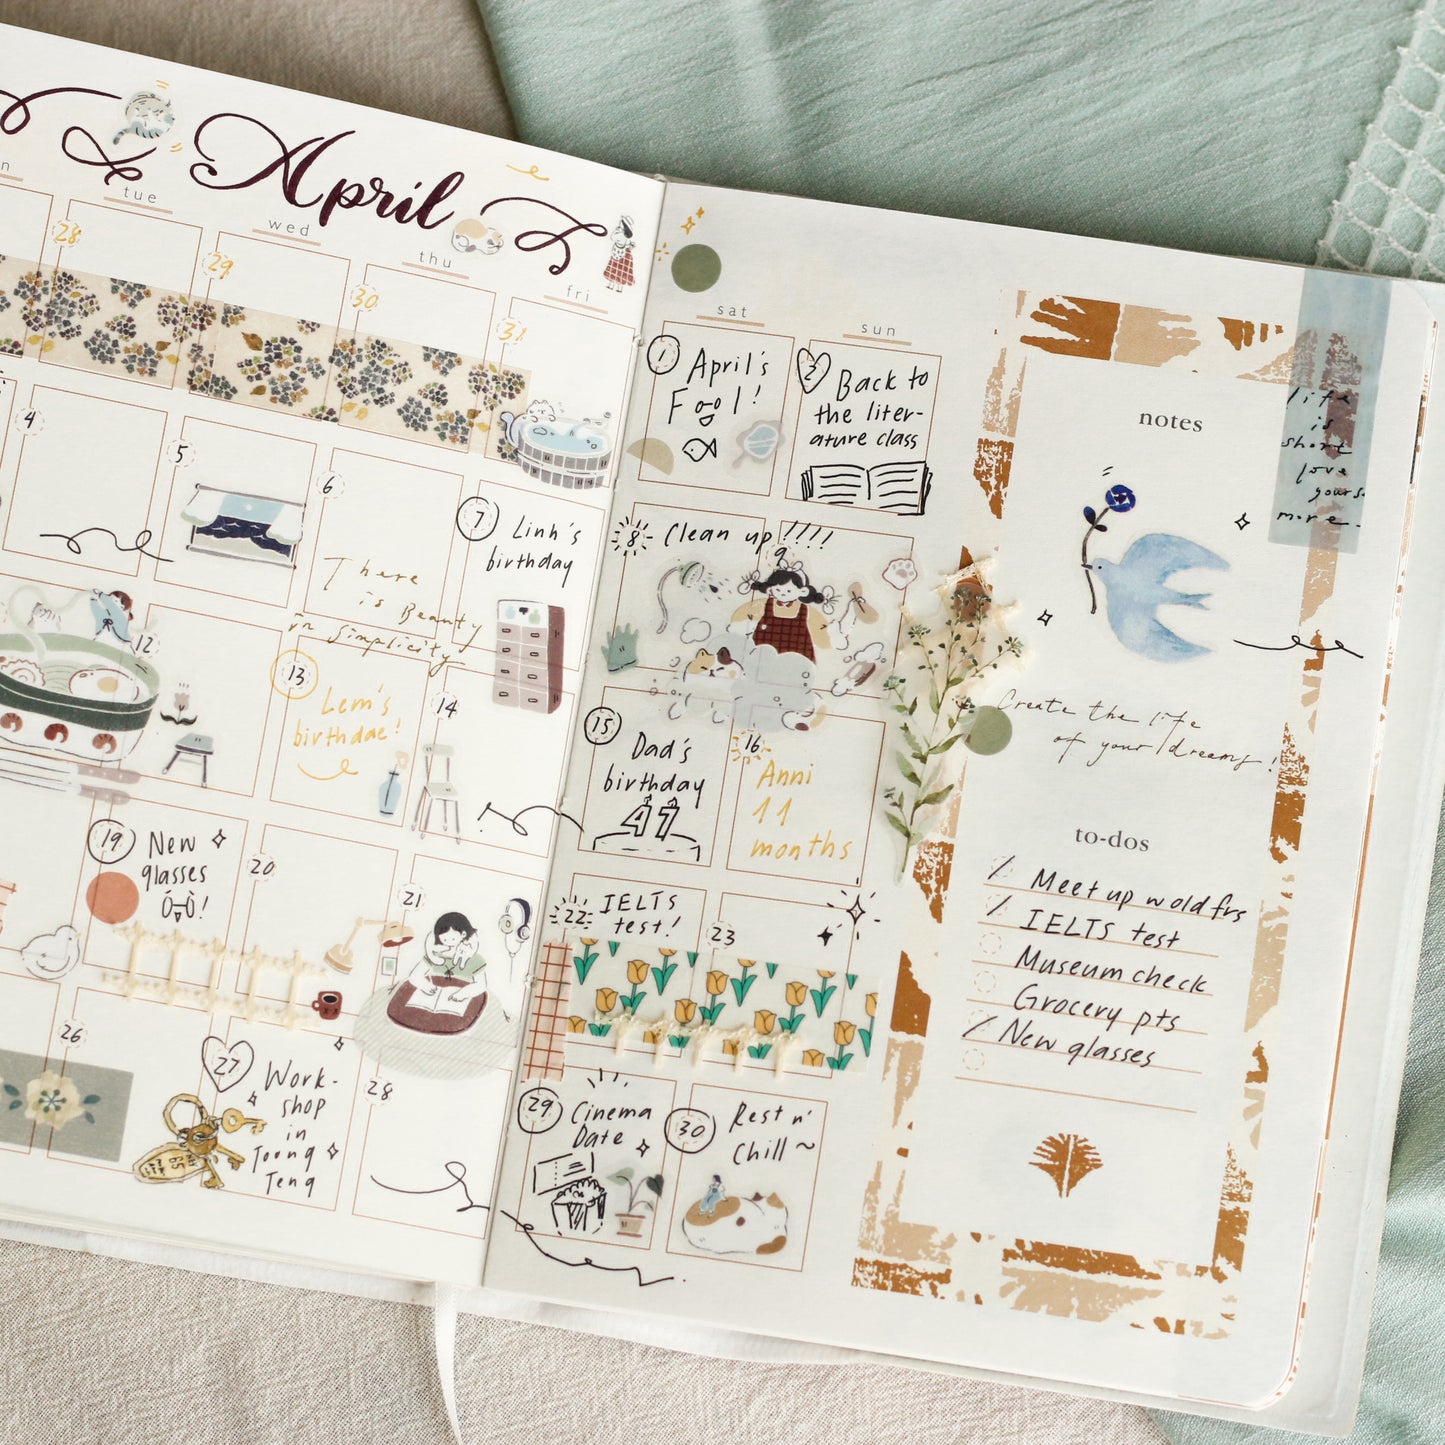 April
n
tue
wed
thu
fri
sat
sun
28
29
30
31
1
April's
Fool!
2
Back to
the liter-
ature class
4
5
6
7
Linh's
birthday
8
Clean up!!!!
9
There
is Beauty
in simplicity
12
13
Lem's
birthdae!
14
15
Dad's
birthday
47
16
Anni
11
months
19
New
glasses
20
21
22
IELTS
test!
23
26
27
Work-
shop
in
Toong
Teng
28
29
Cinema
Date
30
Rest n'
Chill ~
notes
life
is
short
love
yourse
more.
Create the life
of your dreams!
to-dos
Meet up w old frs
IELTS test
Museum check
Grocery pts
New glasses